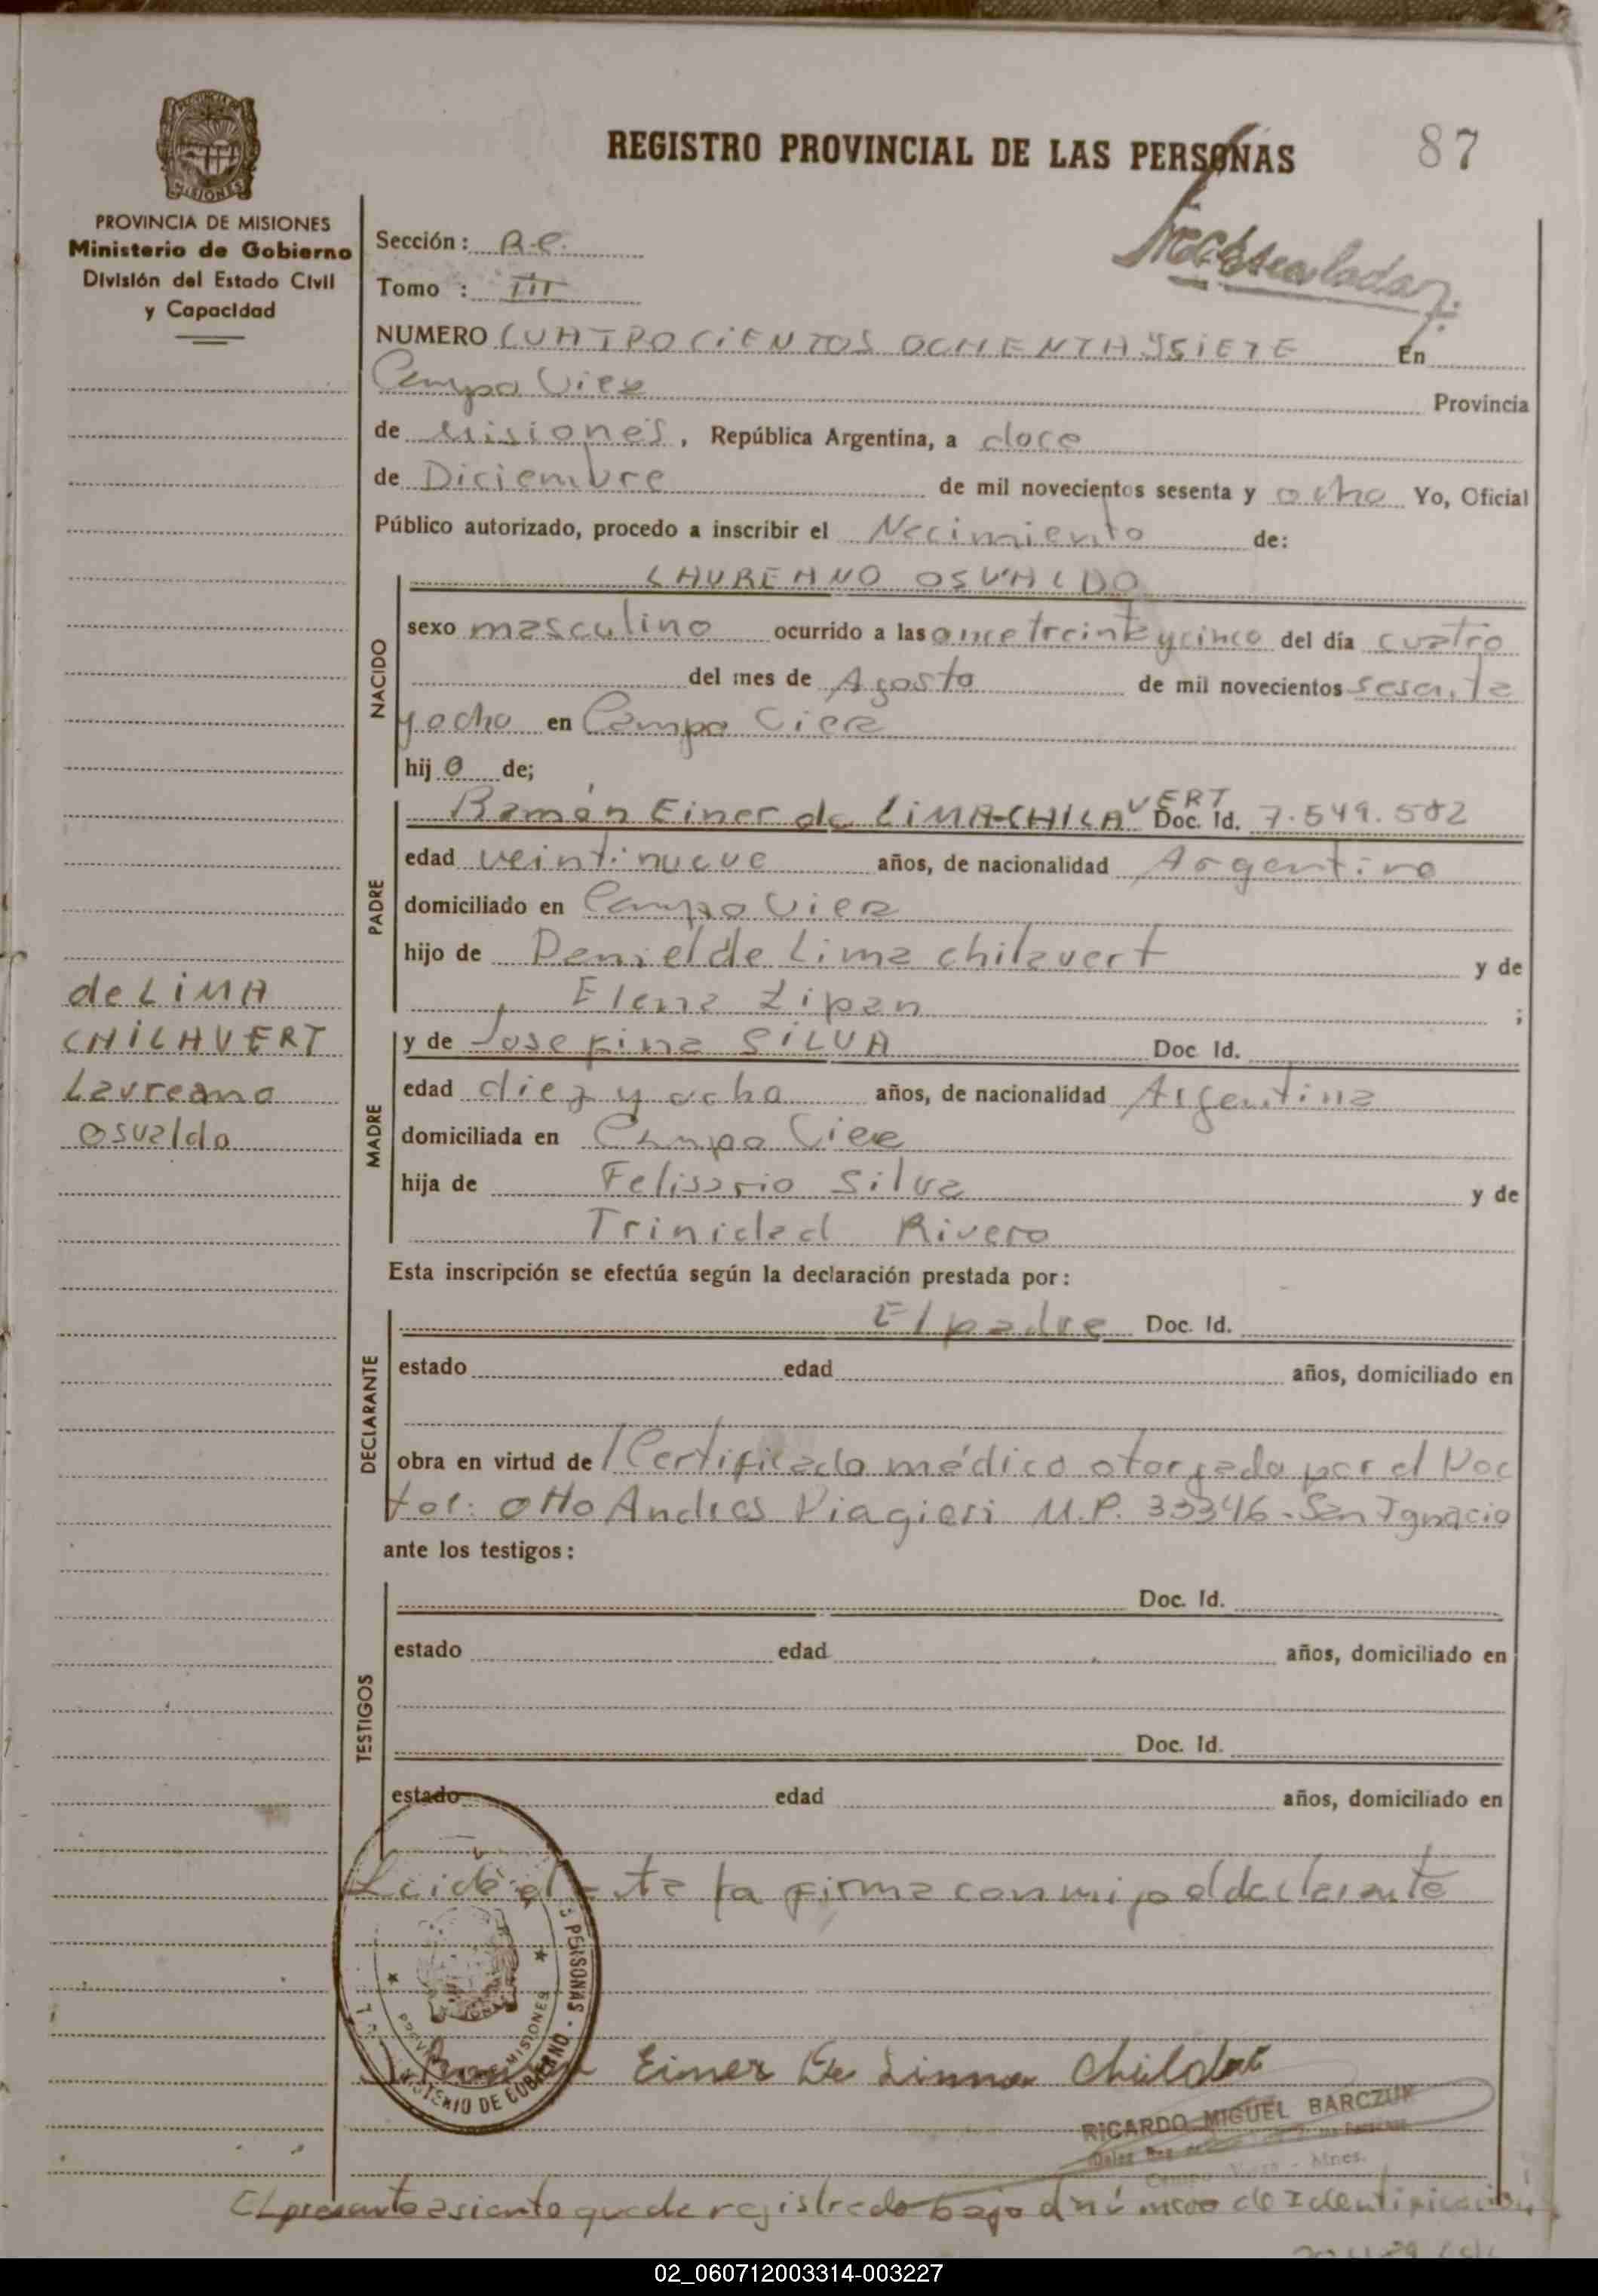 REGISTRO PROVINCIAL DE LAS PERSONAS
87
PROVINCIA DE MISIONES
Ministerio de Gobierno
División del Estado Civil
y Capacidad
Sección: R.C.
Tomo : III
NUMERO CUATROCIENTOS OCHENTA Y SIETE En
Campo Viera Provincia
de Misiones, República Argentina, a doce
de Diciembre de mil novecientos sesenta y ocho Yo, Oficial
Público autorizado, procedo a inscribir el Nacimiento de:
NACIDO
LAUREANO OSVALDO
sexo masculino ocurrido a las once treinta y cinco del día cuatro
del mes de Agosto de mil novecientos sesenta
y ocho en Campo Viera
hijo de;
PADRE
Ramón Einer de LIMA-CHILAVERT Doc. Id. 7.549.582
edad veintinueve años, de nacionalidad Argentino
domiciliado en Campo Viera
hijo de Daniel de Lima chilavert y de
Elena Zipan ;
de LIMA
CHILAVERT
Laureano
Osvaldo
MADRE
y de Josefina SILVA Doc Id.
edad diez y ocho años, de nacionalidad Argentina
domiciliada en Campo Viera
hija de Felisario Silva y de
Trinidad Rivero
Esta inscripción se efectúa según la declaración prestada por:
DECLARANTE
El padre Doc. Id.
estado edad años, domiciliado en
obra en virtud de Certificado médico otorgado por el Doc
tor: Otto Andres Viagieri M.P. 33346-San Ignacio
ante los testigos:
TESTIGOS
Doc. Id.
estado edad años, domiciliado en
Doc. Id.
estado edad años, domiciliado en
Leida el acta la firma conmigo el declarante
PERSONAS - MINISTERIO DE GOBIERNO
MISIONES
Ramon Eimer De Limma
RICARDO MIGUEL BARCZUK
El presente asiento queda registrado bajo el número de Identificación
02_060712003314-003227